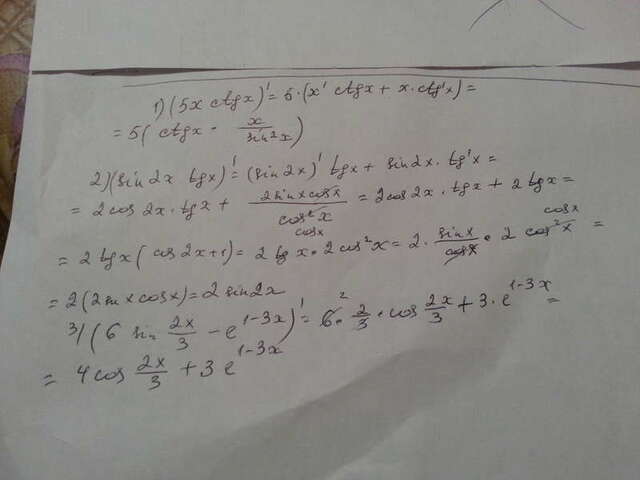 1) (5x ctgx)' = 5·(x' ctgx + x·ctg'x) =
= 5( ctgx - x/sin²x )
2) (sin2x tgx)' = (sin2x)' tgx + sin2x·tg'x =
= 2cos2x·tgx + 2sinxcosx/cos²x = 2cos2x·tgx + 2tgx =
cosx
cosx
= 2tgx(cos2x+1) = 2tgx·2cos²x = 2·sinx/cosx·2cos²x =
= 2(2sinxcosx) = 2sin2x
3) (6 sin 2x/3 - e^(1-3x))' = 6·2/3·cos 2x/3 + 3·e^(1-3x) =
2
= 4cos 2x/3 + 3e^(1-3x)